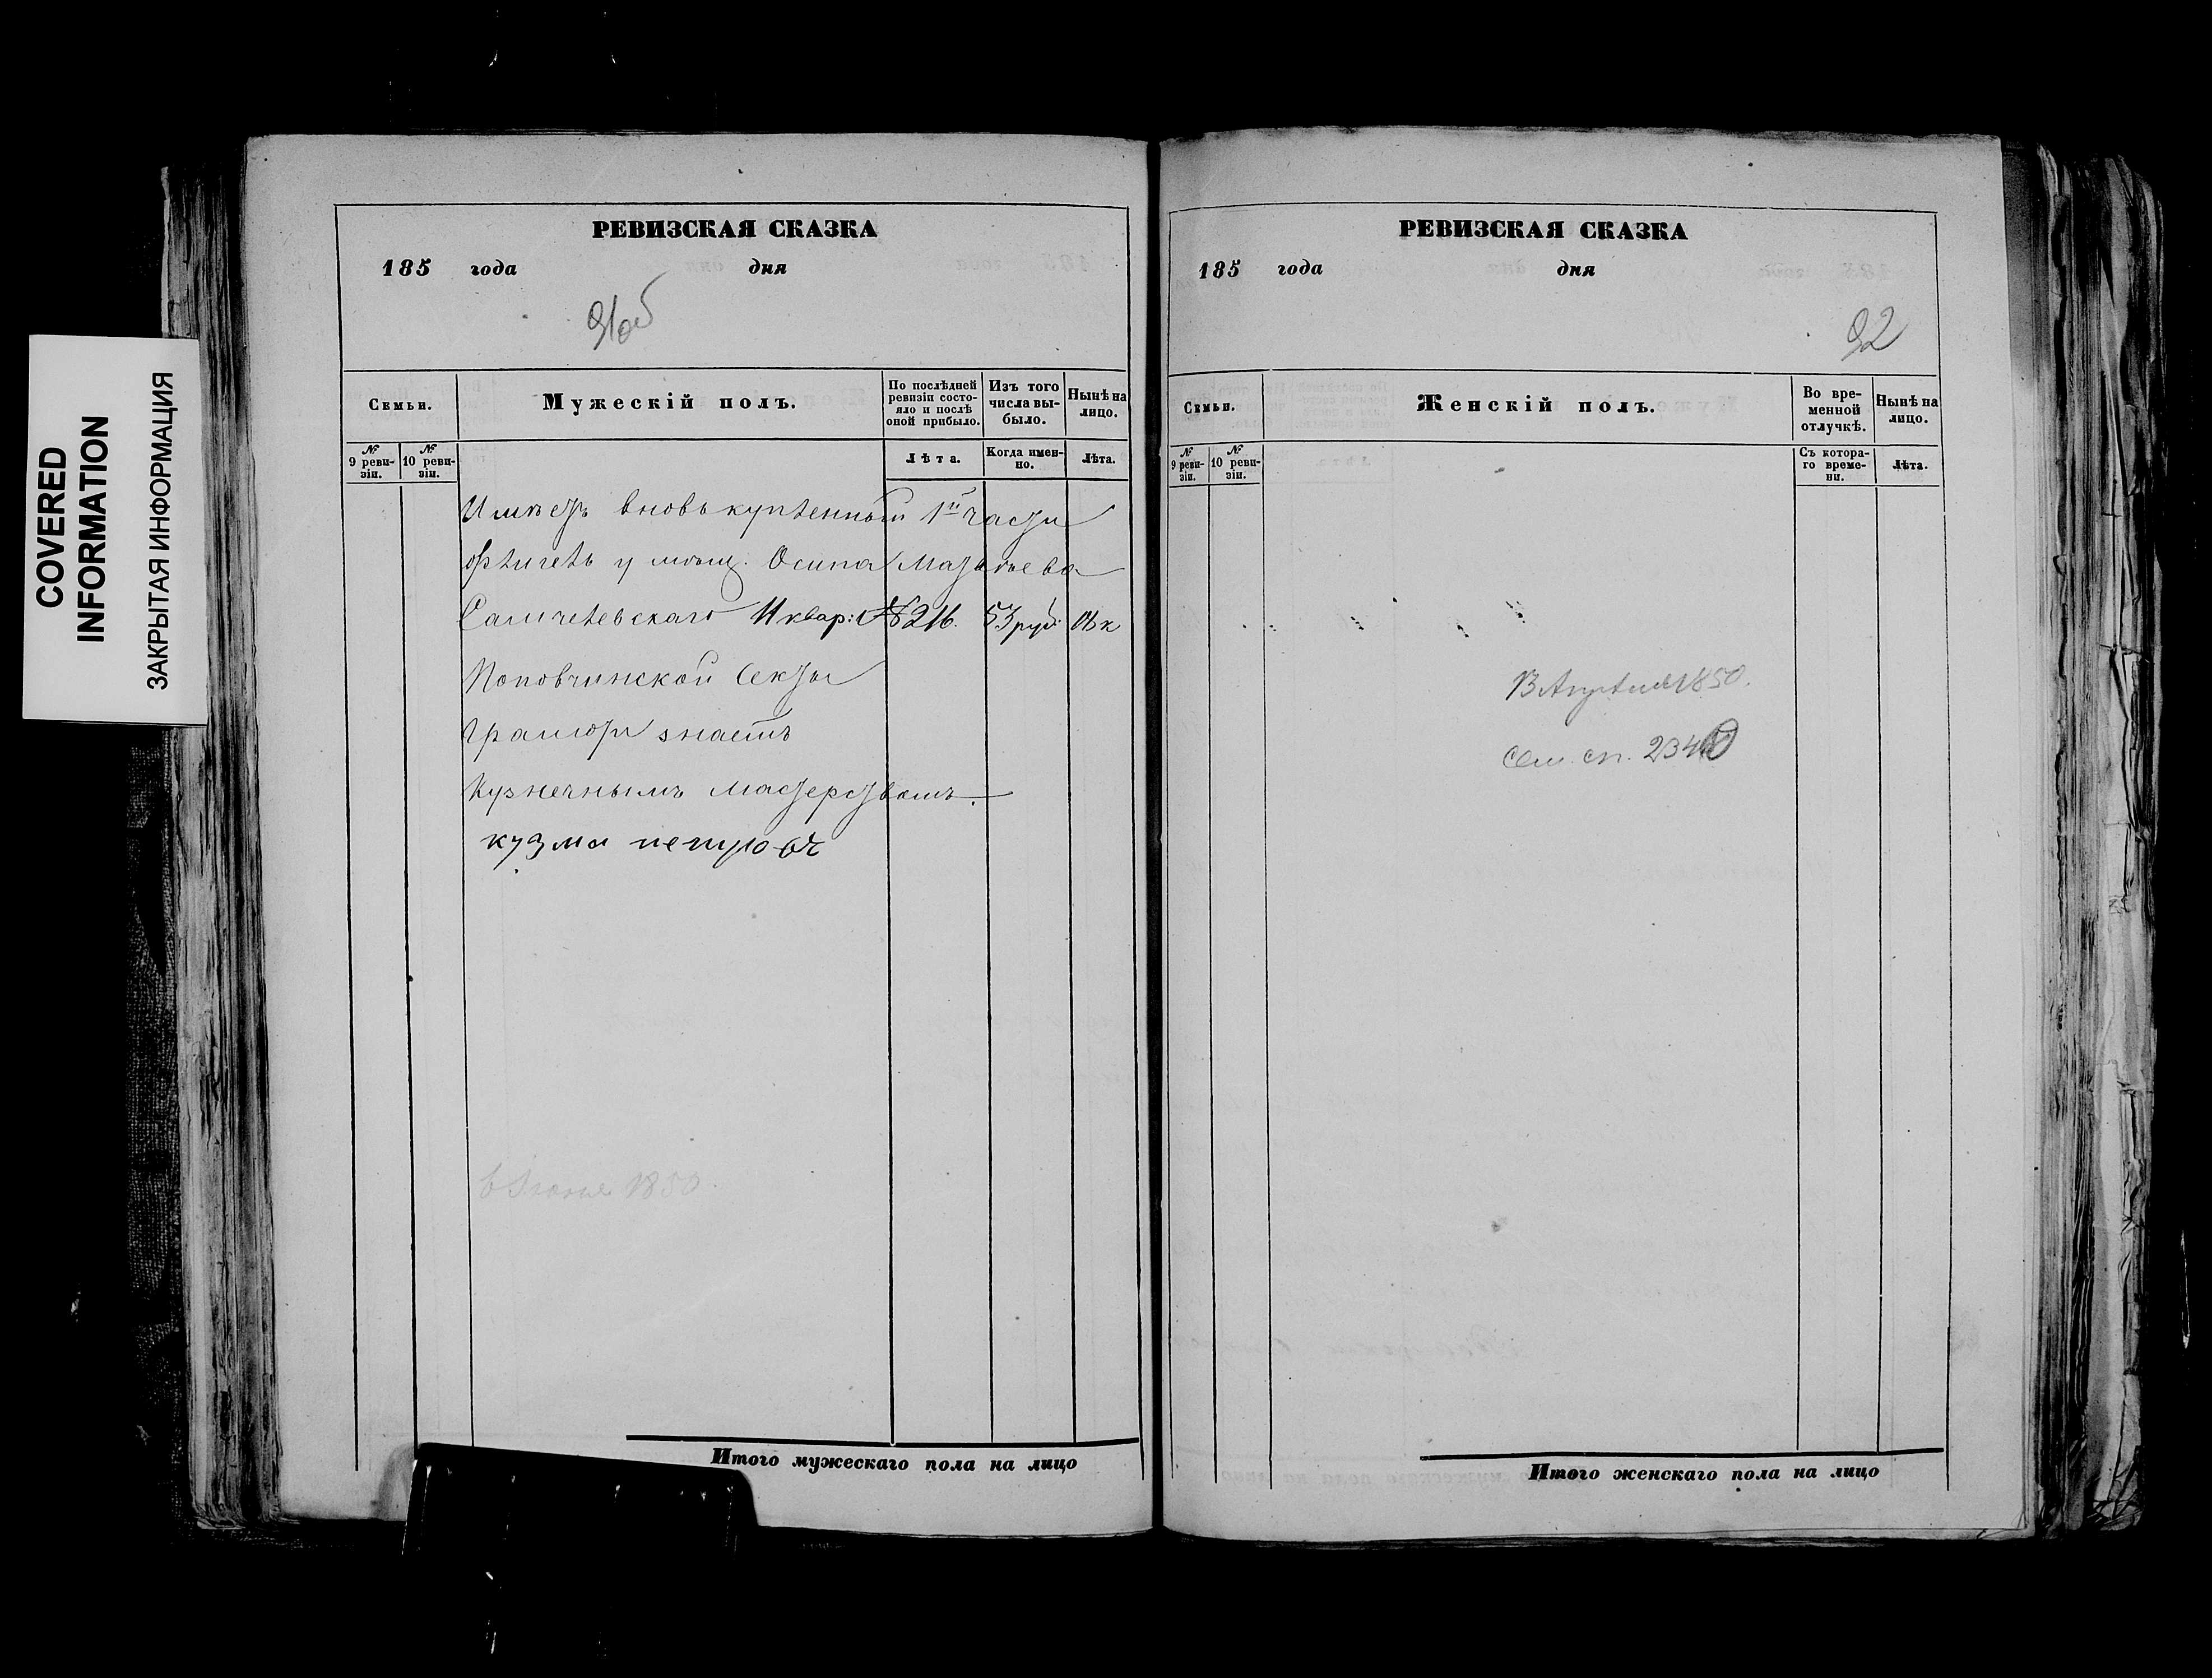 COVERED
INFORMATION
ЗАКРЫТАЯ ИНФОРМАЦИЯ
РЕВИЗСКАЯ СКАЗКА
185 года дня
91об
Семьи.
Мужескій полъ.
По послѣдней ревизіи состояло и послѣ оной прибыло.
Изъ того числа выбыло.
Нынѣ на лицо.
№ 9 ревизіи.
№ 10 ревизіи.
Лѣта.
Когда именно.
Лѣта.
Имѣетъ вновь купленный 1й части
флигель у мѣщ. Осипа Матвѣева
Самичелевскаго 11 квар: № 216. 53 руб: к
Поповчинской Секты
Грамоты знаетъ
Кузнечнымъ мастерствомъ.
кузма петровъ
1850.
Итого мужескаго пола на лицо
РЕВИЗСКАЯ СКАЗКА
185 года дня
92
Семьи.
Женскій полъ.
Во временной отлучкѣ.
Нынѣ на лицо.
№ 9 ревизіи.
№ 10 ревизіи.
Съ котораго времени.
Лѣта.
В Апрѣлѣ 1850.
сем. сп.
Итого женскаго пола на лицо